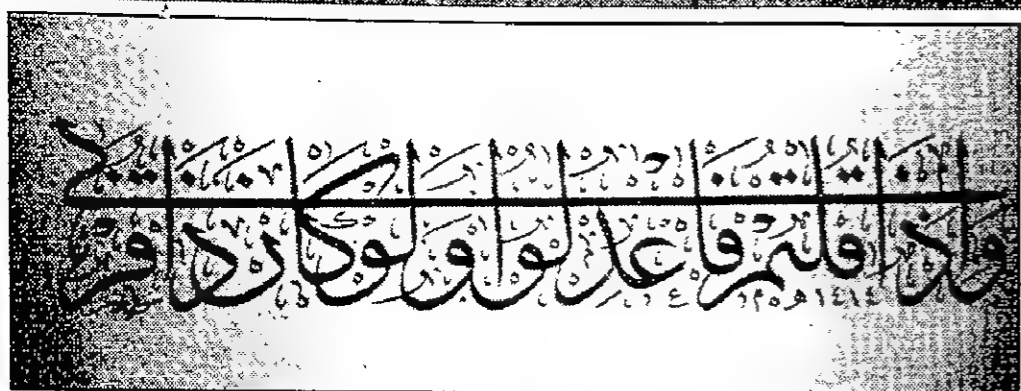 وإذا قلتم فاعدلوا ولو كان ذا قربى
١٤١٤ هـ